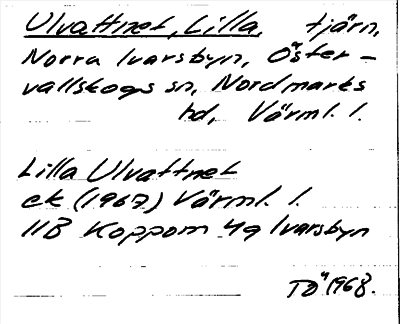 Ulvattnet, Lilla, tjärn,
Norra Ivarsbyn, Öster-
vallskogs sn, Nordmarks
hd, Värml. l.
Lilla Ulvattnet
ek (1967) Värml. l.
11B Koppom 4g Ivarsbyn
TÖ 1968.